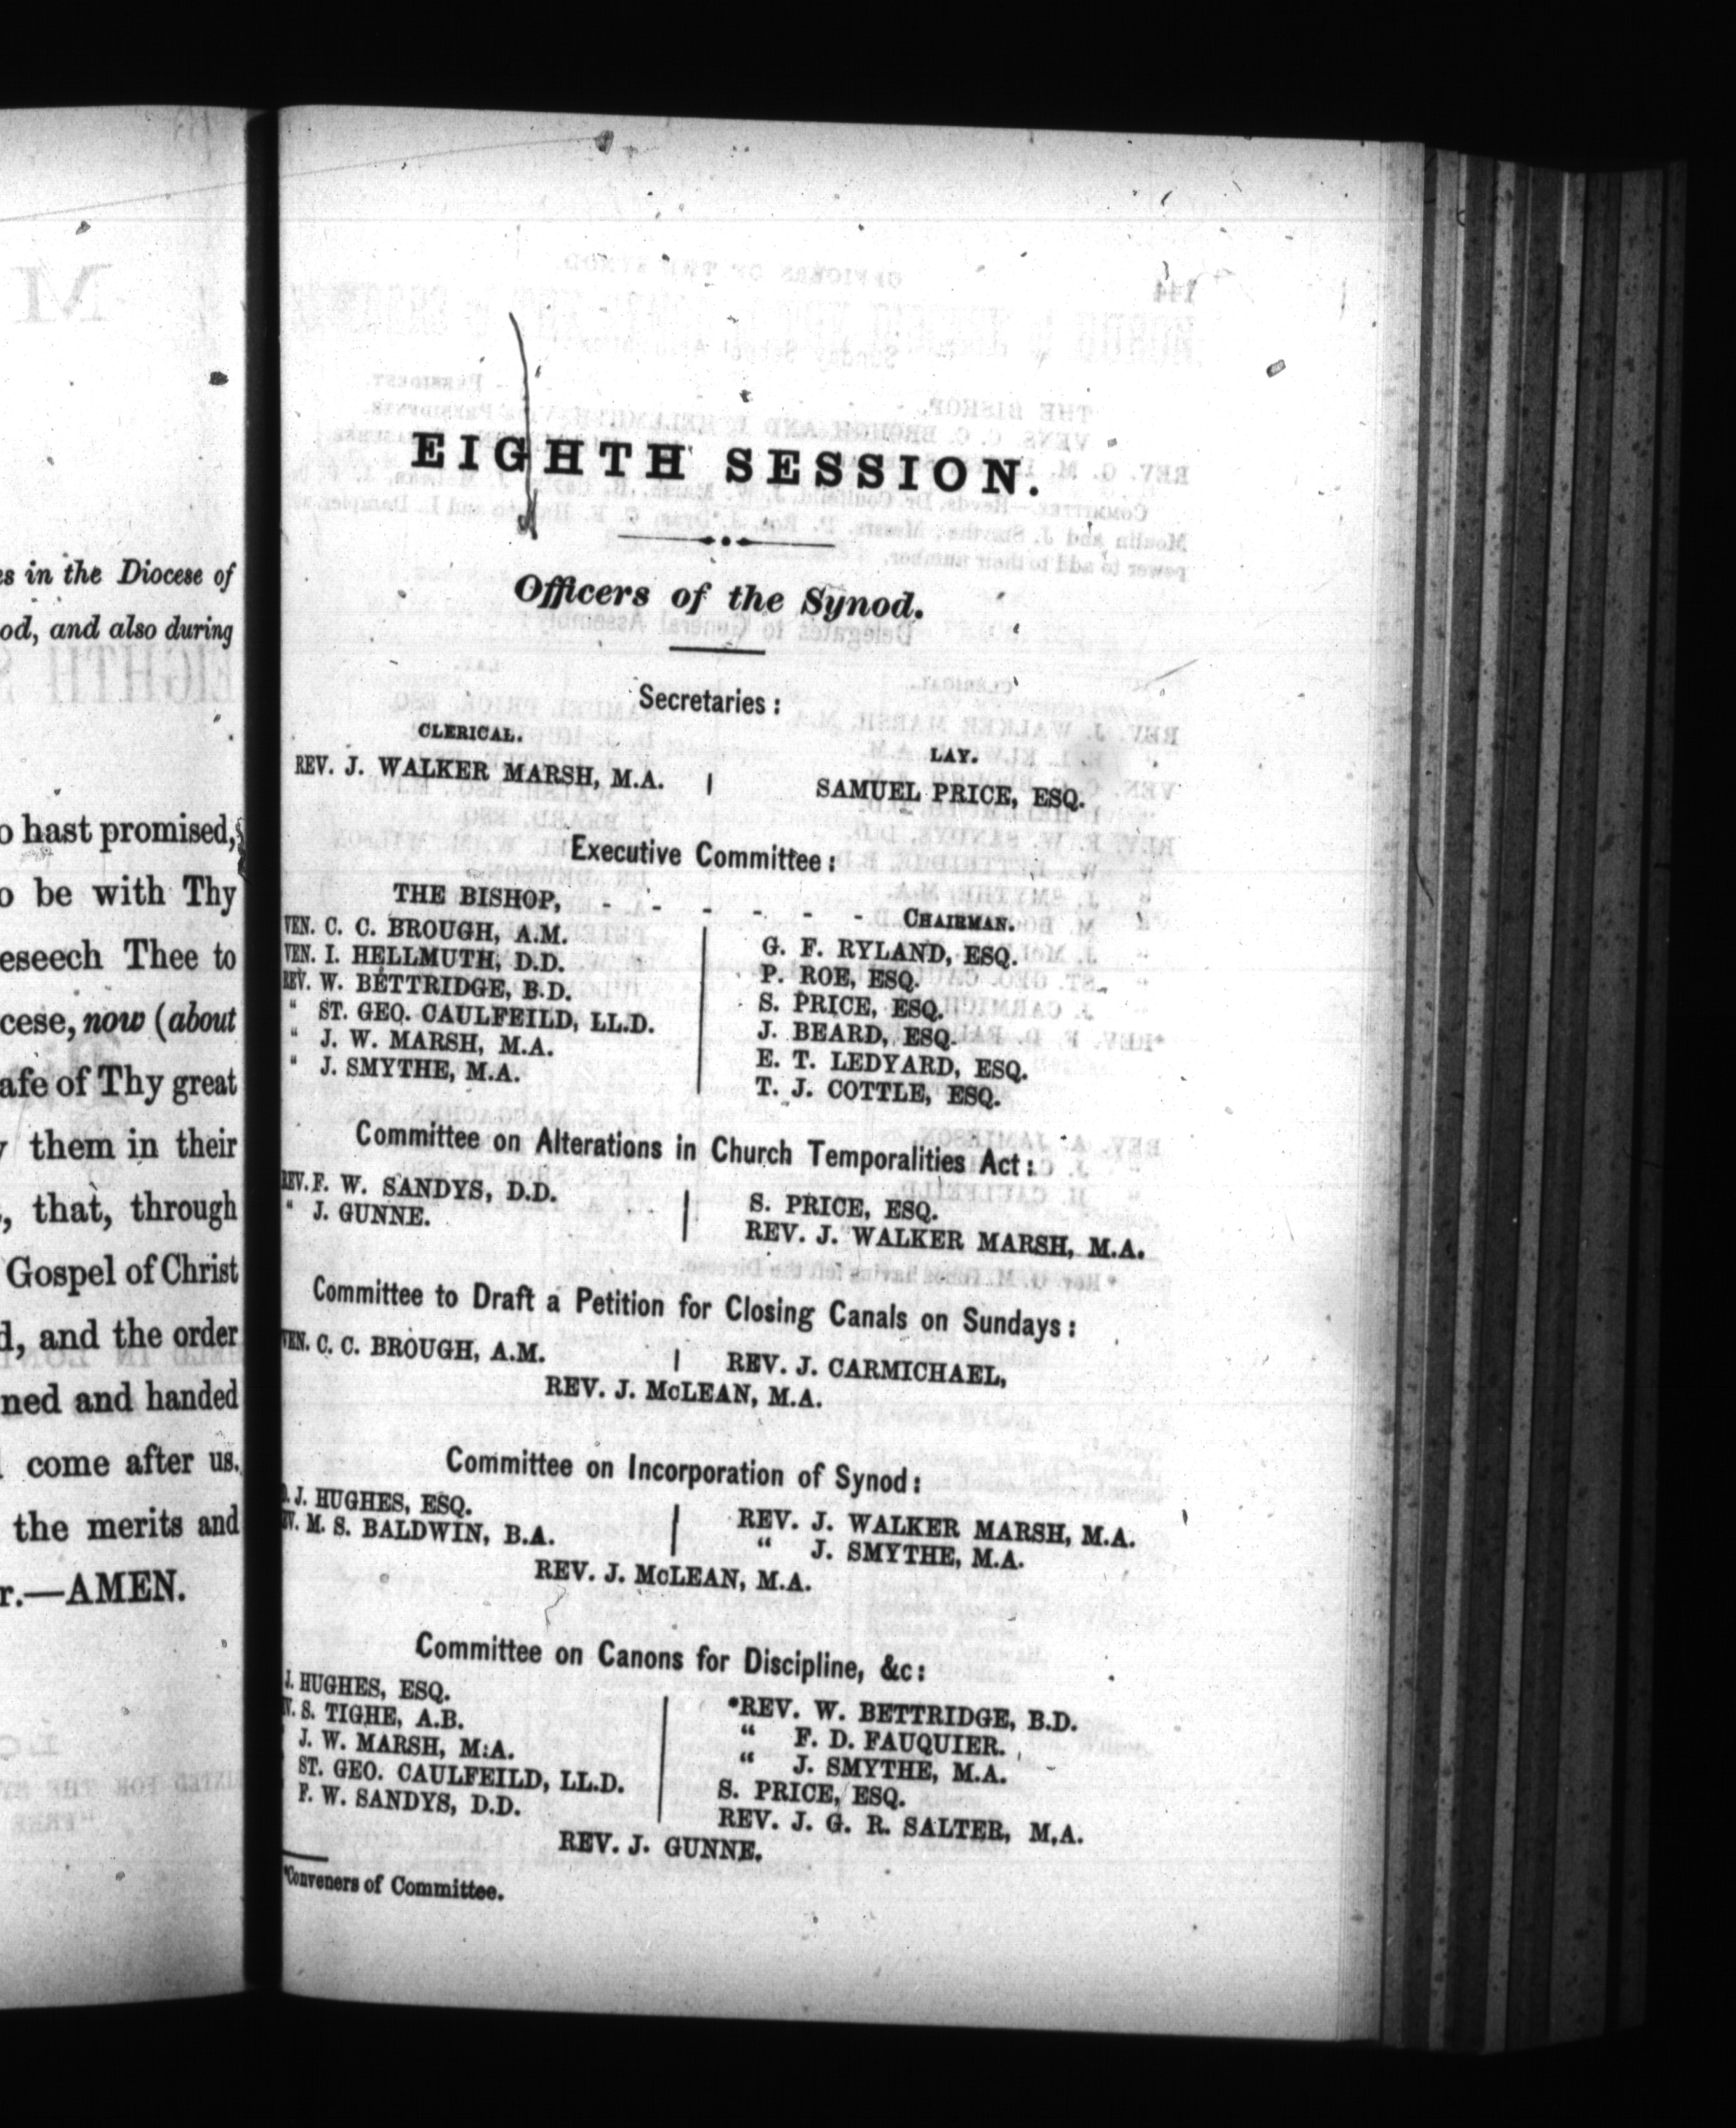 es in the Diocese of
od, and also during
o hast promised,
o be with Thy
eseech Thee to
cese, now (about
afe of Thy great
y them in their
, that, through
Gospel of Christ
d, and the order
ned and handed
come after us.
the merits and
r.—AMEN.
EIGHTH SESSION.
Officers of the Synod.
Secretaries:
CLERICAL.
LAY.
REV. J. WALKER MARSH, M.A. | SAMUEL PRICE, ESQ.
Executive Committee:
THE BISHOP, - - - - - - CHAIRMAN.
VEN. C. C. BROUGH, A.M. | G. F. RYLAND, ESQ.
VEN. I. HELLMUTH, D.D. | P. ROE, ESQ.
REV. W. BETTRIDGE, B.D. | S. PRICE, ESQ.
" ST. GEO. CAULFEILD, LL.D. | J. BEARD, ESQ.
" J. W. MARSH, M.A. | E. T. LEDYARD, ESQ.
" J. SMYTHE, M.A. | T. J. COTTLE, ESQ.
Committee on Alterations in Church Temporalities Act:
REV. F. W. SANDYS, D.D. | S. PRICE, ESQ.
" J. GUNNE. | REV. J. WALKER MARSH, M.A.
Committee to Draft a Petition for Closing Canals on Sundays:
VEN. C. C. BROUGH, A.M. | REV. J. CARMICHAEL,
REV. J. McLEAN, M.A.
Committee on Incorporation of Synod:
J. HUGHES, ESQ. | REV. J. WALKER MARSH, M.A.
EV. M. S. BALDWIN, B.A. | " J. SMYTHE, M.A.
REV. J. McLEAN, M.A.
Committee on Canons for Discipline, &c:
J. HUGHES, ESQ. | *REV. W. BETTRIDGE, B.D.
S. TIGHE, A.B. | " F. D. FAUQUIER.
J. W. MARSH, M.A. | " J. SMYTHE, M.A.
ST. GEO. CAULFEILD, LL.D. | S. PRICE, ESQ.
F. W. SANDYS, D.D. | REV. J. G. R. SALTER, M.A.
REV. J. GUNNE.
*Conveners of Committee.